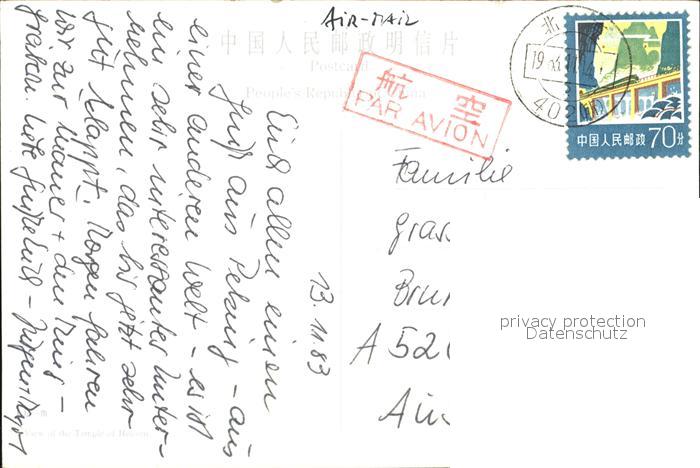 AIR-MAIL
中国人民邮政明信片
Postcard
People's Republic of China
航空
PAR AVION
北
19
中国人民邮政 70分
13.11.83
Euch allen einen
Gruß aus Peking – aus
einer anderen Welt – es ist
ein sehr interessantes Unter-
nehmen, das bis jetzt sehr
gut klappt. Morgen fahren
wir zur Mauer + den Ming –
Gräbern. Liebe Grüße Euch –
View of the Temple of Heaven
Familie
Gras
Brun
A 52
privacy protection
Datenschutz